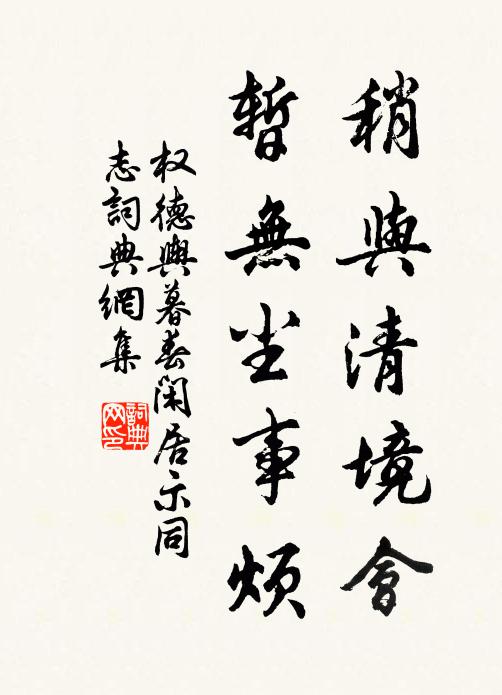 稍與清境會
暫無尘事煩
权德輿暮春閑居示同
志詞典網集
詞典网印